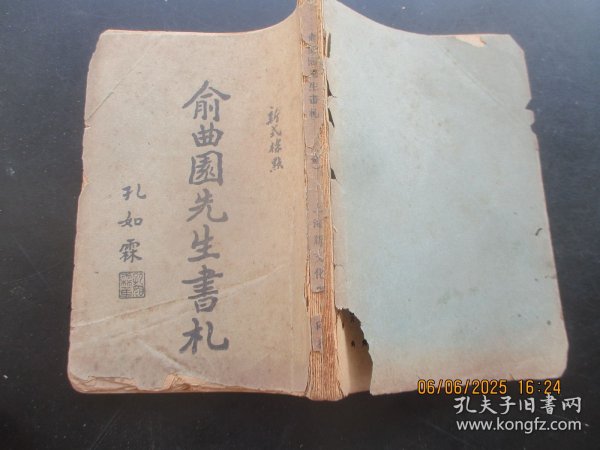 新式標點
俞曲園先生書札
孔如霖
俞曲園先生書札
06/06/2025 16:24
孔夫子旧书网
www.kongfz.com